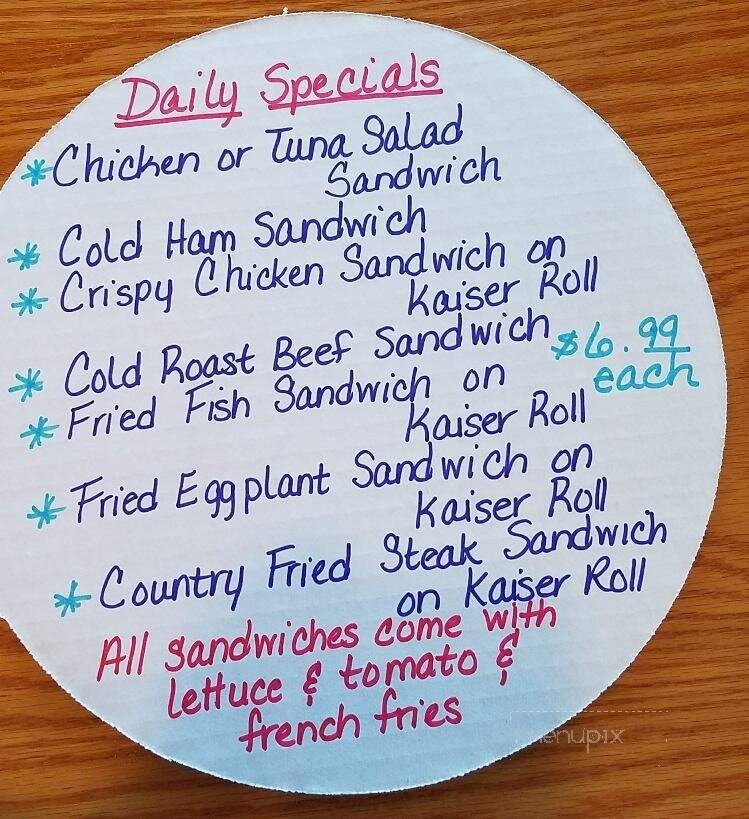 Daily Specials
* Chicken or Tuna Salad
Sandwich
* Cold Ham Sandwich
* Crispy Chicken Sandwich on
Kaiser Roll
* Cold Roast Beef Sandwich
$6.99
each
* Fried Fish Sandwich on
Kaiser Roll
* Fried Eggplant Sandwich on
Kaiser Roll
* Country Fried Steak Sandwich
on Kaiser Roll
All sandwiches come with
lettuce & tomato &
french fries
menupix